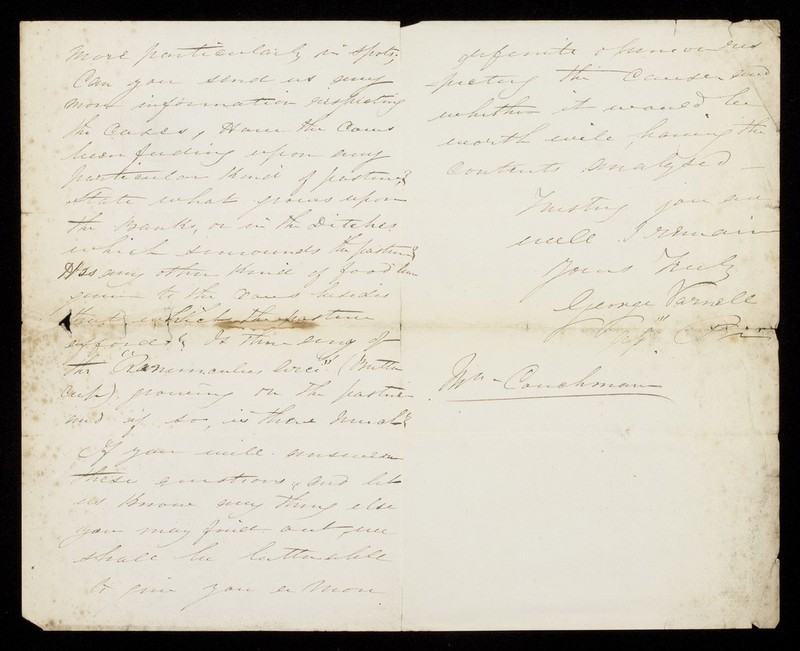 more particularly in spots;
Can you send us any
more information respecting
the Cases, Have the Cows
been feeding upon any
particular kind of pasture?
State what grows upon
the Banks, or in the Ditches
which surrounds the pasture?
Has any other kind of food been
given to the Cows besides
that which the pasture
affords? Is there any of
the "Ranunculus (Butter
Cup) growing on the pasture
and if so, is there much?
If you will answer
these questions, and let
us know any thing else
you may find out, we
shall be better able
to give you a more
definite opinion res
-pecting the Causes and
whether it would be
worth wile, having the
Contents analysed —
Trusting you are
well I remain
Yours Truly
George Varnell
Mr Couchman